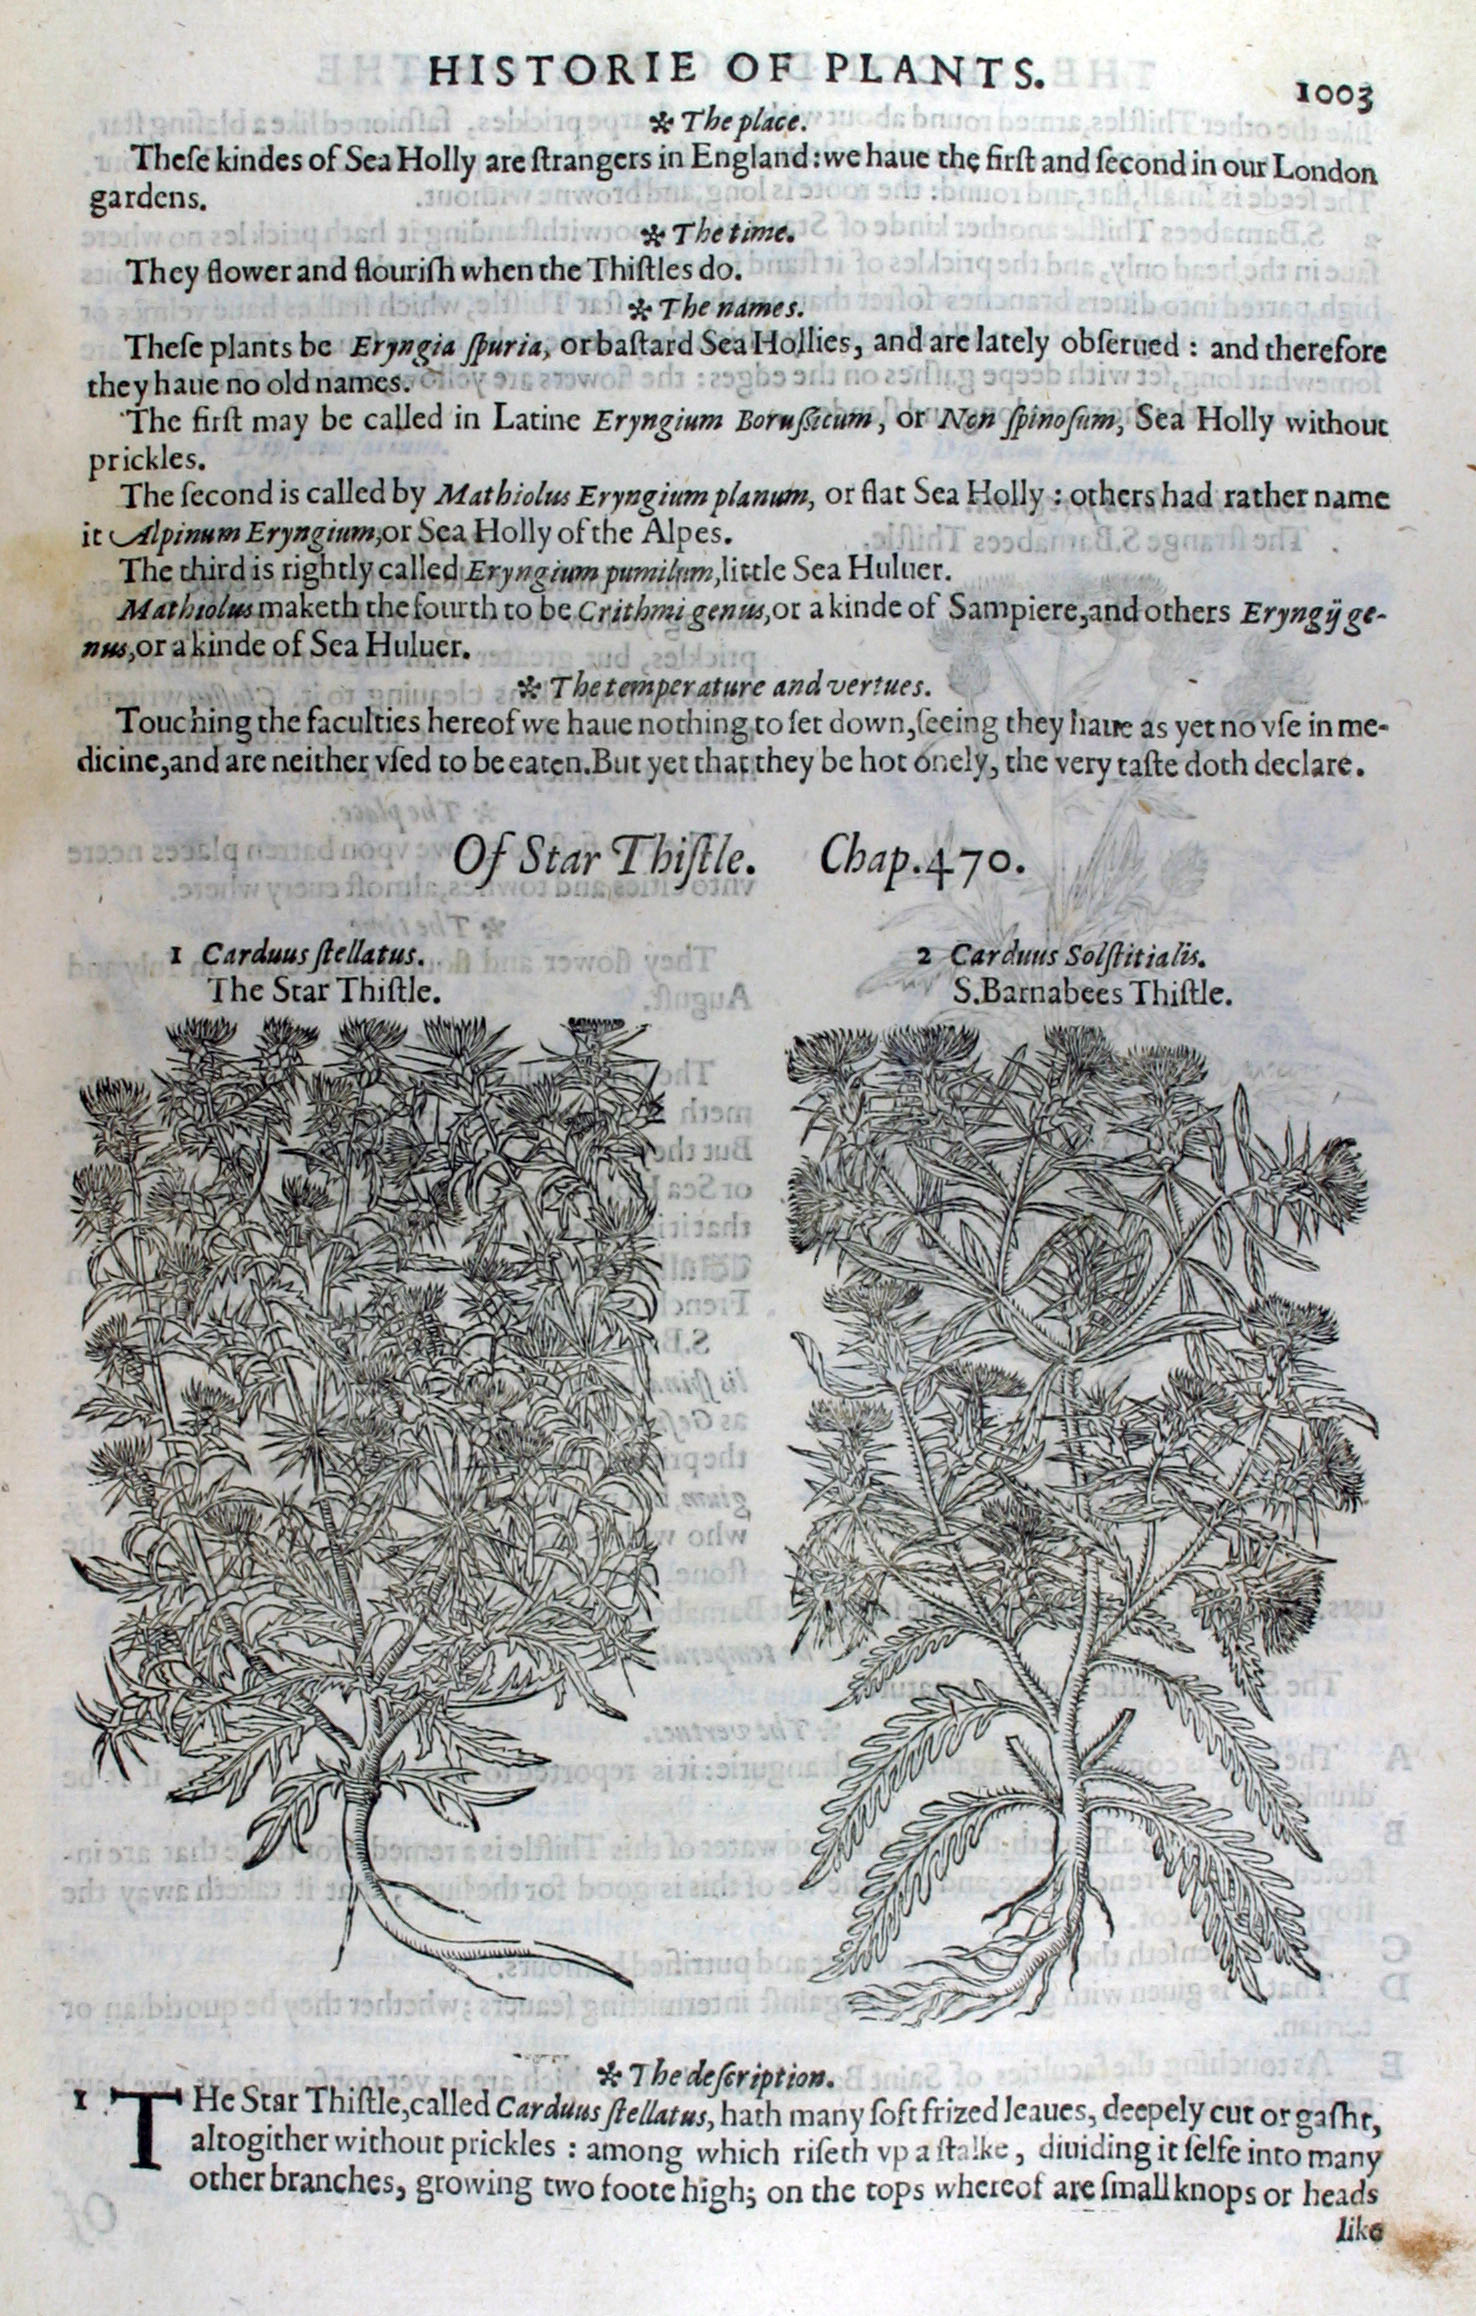 HISTORIE OF PLANTS. 1003
✲ The place.
Theſe kindes of Sea Holly are ſtrangers in England: we haue the firſt and ſecond in our London
gardens.
✲ The time.
They flower and flouriſh when the Thiſtles do.
✲ The names.
Theſe plants be Eryngia ſpuria, or baſtard Sea Hollies, and are lately obſerued : and therefore
they haue no old names.
The firſt may be called in Latine Eryngium Boruſſicum, or Non ſpinoſum, Sea Holly without
prickles.
The ſecond is called by Mathiolus Eryngium planum, or flat Sea Holly : others had rather name
it Alpinum Eryngium, or Sea Holly of the Alpes.
The third is rightly called Eryngium pumilum, little Sea Huluer.
Mathiolus maketh the fourth to be Crithmi genus, or a kinde of Sampiere, and others Eryngĳ ge-
nus, or a kinde of Sea Huluer.
✲ The temperature and vertues.
Touching the faculties hereof we haue nothing to ſet down, ſeeing they haue as yet no vſe in me-
dicine, and are neither vſed to be eaten. But yet that they be hot onely, the very taſte doth declare.
Of Star Thiſtle. Chap. 470.
1 Carduus ſtellatus.
The Star Thiſtle.
2 Carduus Solſtitialis.
S. Barnabees Thiſtle.
✲ The deſcription.
1 THe Star Thiſtle, called Carduus ſtellatus, hath many ſoft frized leaues, deepely cut or gaſht,
altogither without prickles : among which riſeth vp a ſtalke, diuiding it ſelfe into many
other branches, growing two foote high; on the tops whereof are ſmall knops or heads
like